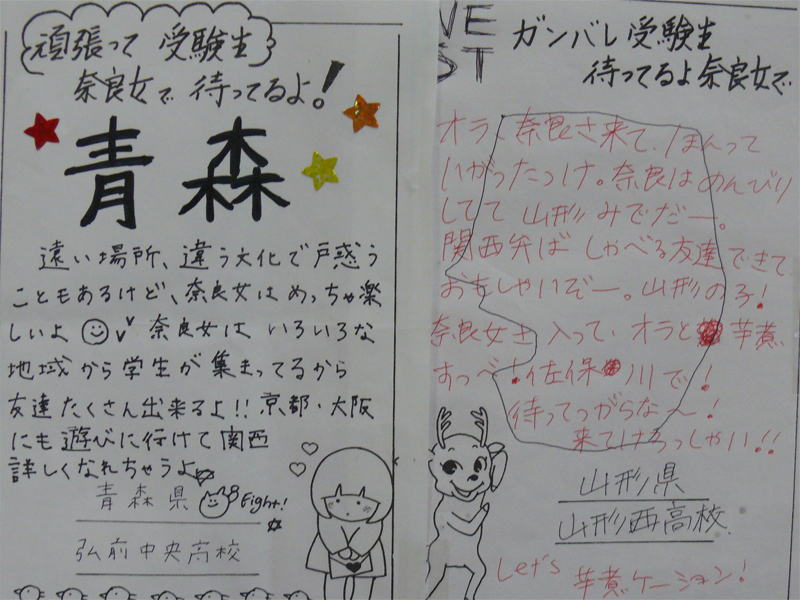 頑張って 受験生
奈良女で 待ってるよ!
青森
遠い場所、違う文化で戸惑う
こともあるけど、奈良女はめっちゃ楽
しいよ 奈良女は いろいろな
地域から学生が集まってるから
友達たくさん出来るよ!! 京都・大阪
にも遊びに行けて関西
詳しくなれちゃうよ
青森県 Fight!
弘前中央高校
ガンバレ受験生
待ってるよ奈良女で
オラ、奈良さ来て、ほんって
いがったっけ。奈良はのんびり
してて 山形みでだー。
関西弁ば しゃべる友達できて
おもしゃいぞー。山形の子!
奈良女さ 入って、オラと 芋煮
すっべ! 佐保川で!
待ってっがらな〜!
来てけろっしゃい!!
山形県
山形西高校
Let's 芋煮ケーション!